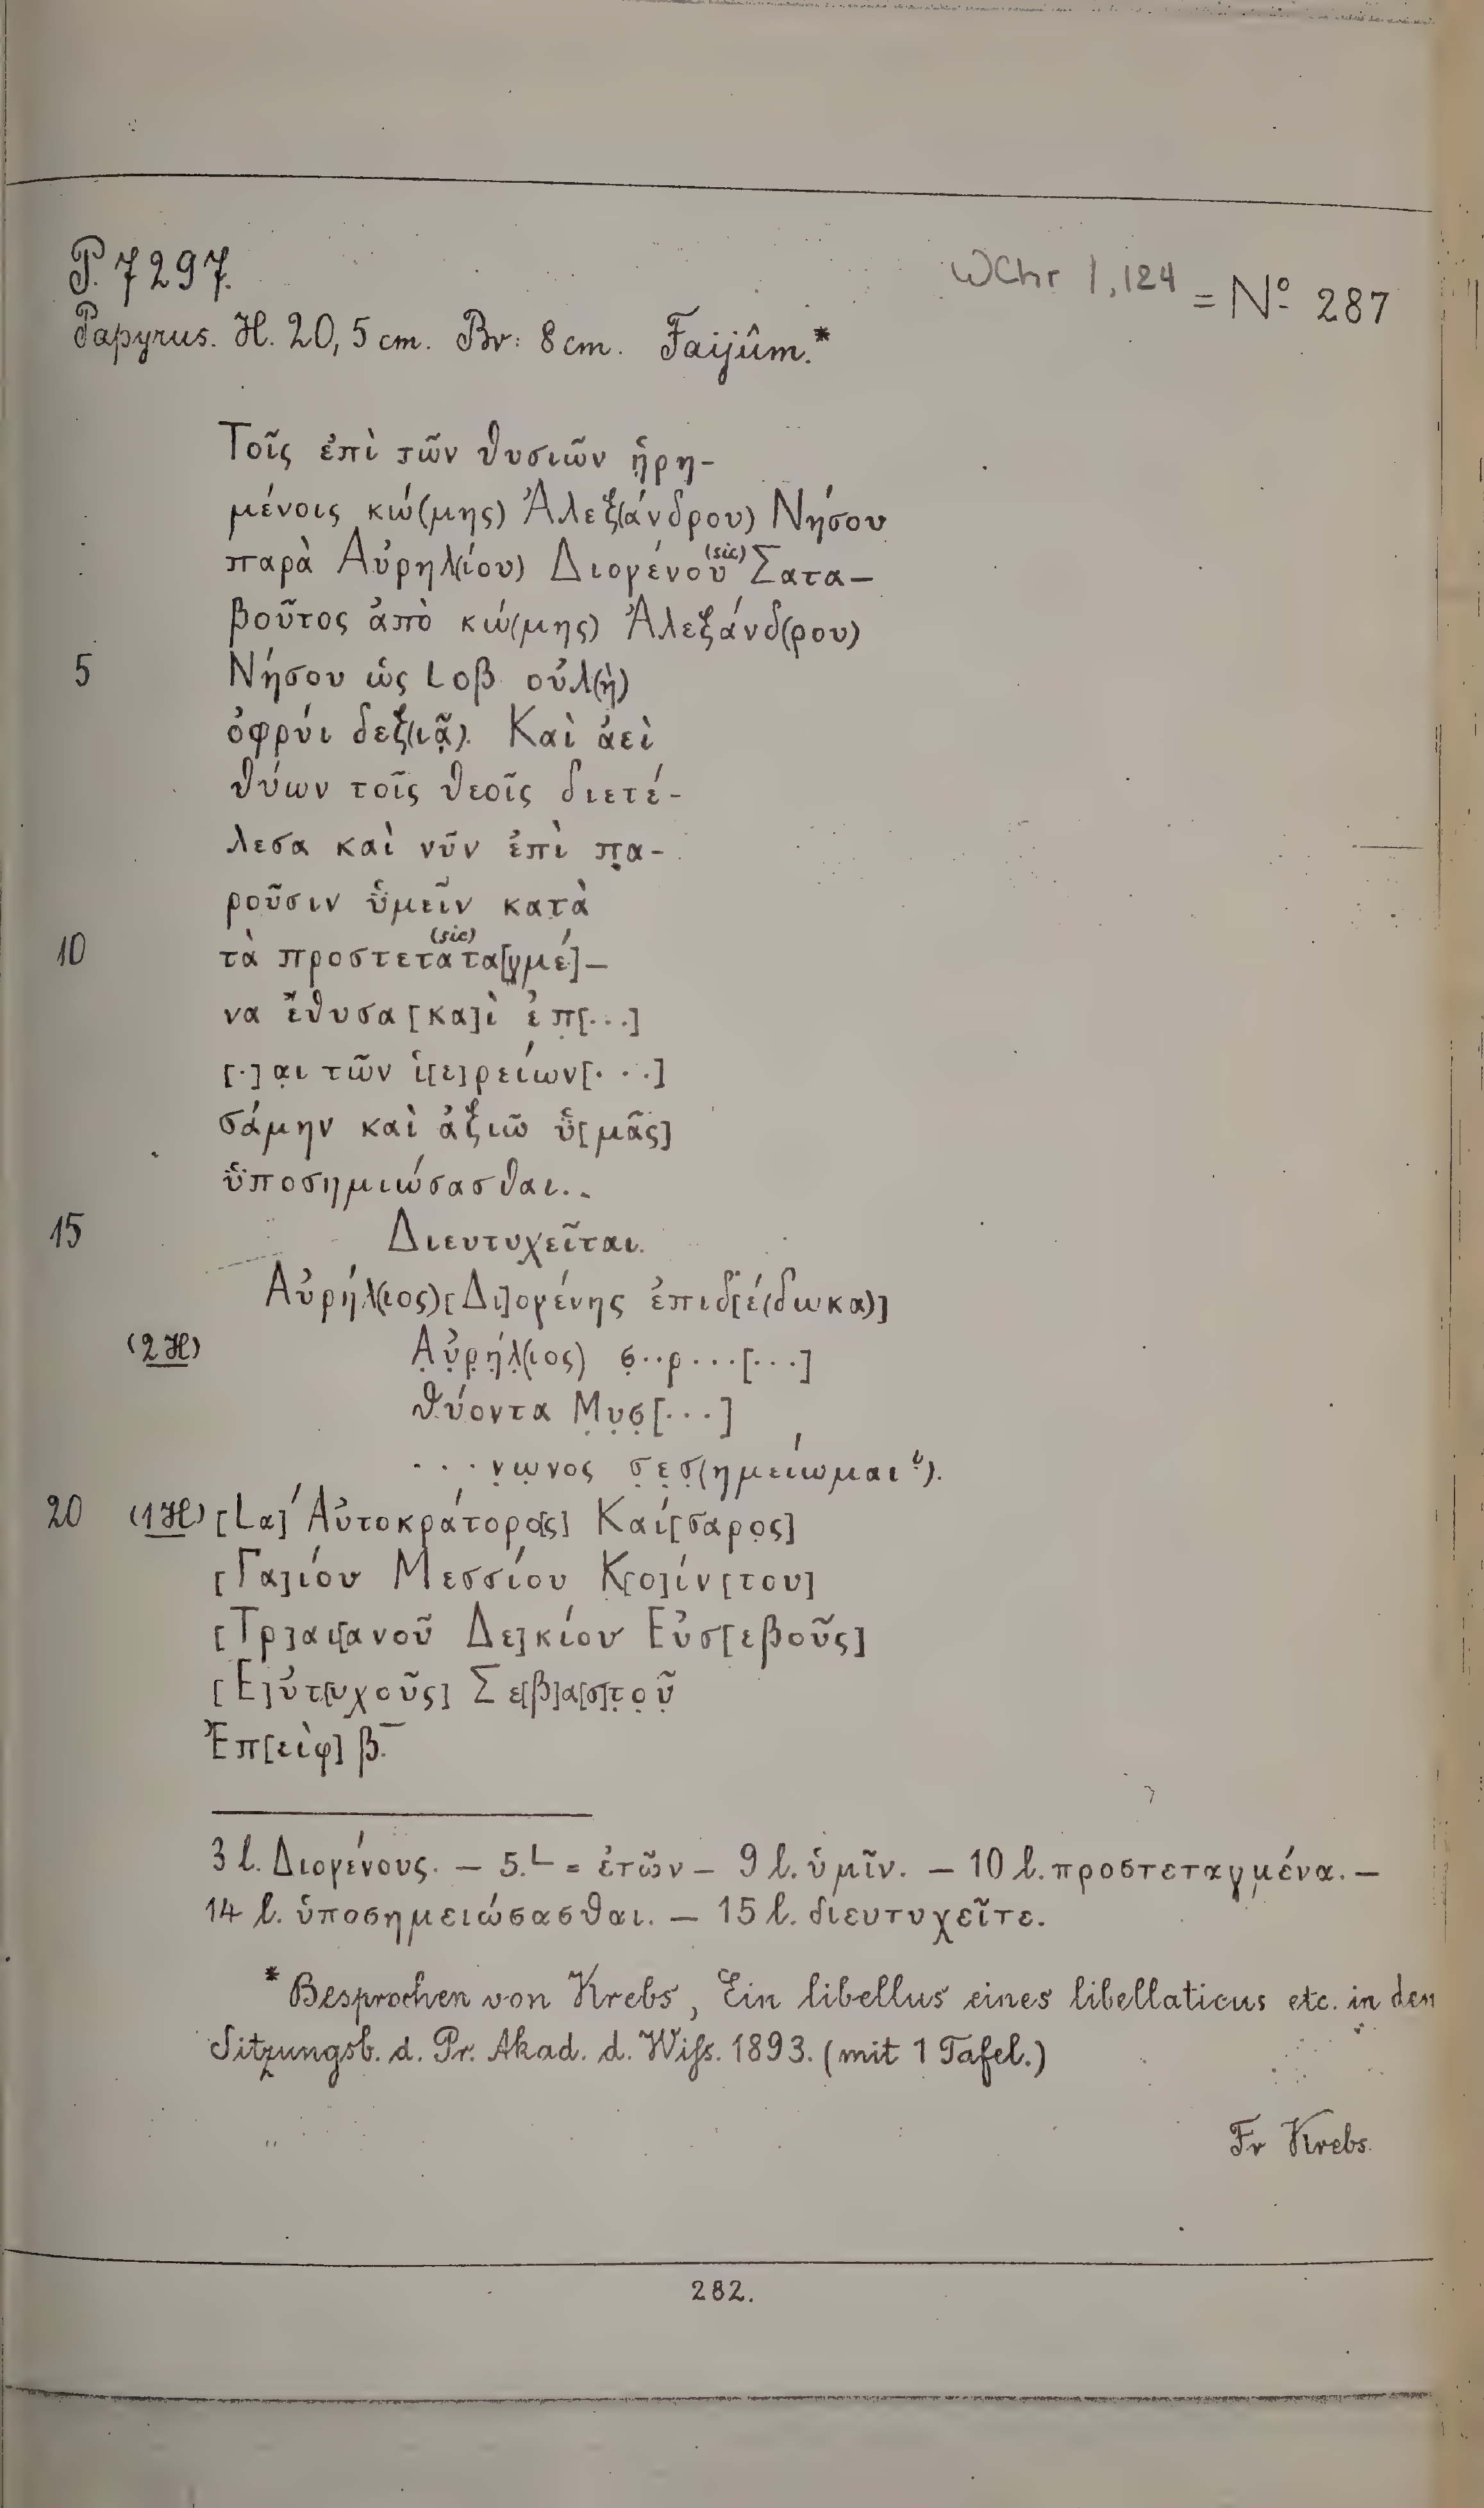 P. 7297.
WChr 1,124 = No 287
Papyrus. H. 20,5 cm. Br: 8 cm. Faijûm.*
Τοῖς ἐπὶ τῶν θυσιῶν ᾑρη-
μένοις κώ(μης) Ἀλεξ(άνδρου) Νήσου
παρὰ Αὐρηλ(ίου) Διογένου (sic) Σατα-
βοῦτος ἀπὸ κώ(μης) Ἀλεξάνδ(ρου)
5 Νήσου ὡς L οβ οὐλ(ὴ)
ὀφρύι δεξ(ιᾷ). Καὶ ἀεὶ
θύων τοῖς θεοῖς διετέ-
λεσα καὶ νῦν ἐπὶ πα-
ροῦσιν ὑμεῖν κατὰ
10 τὰ προστετατα[γμέ]- (sic)
να ἔθυσα [κα]ὶ ἐπ[...]
[.]αι τῶν ἱ[ε]ρείων[...]
σάμην καὶ ἀξιῶ ὑ[μᾶς]
ὑποσημιώσασθαι.
15 Διευτυχεῖται.
Αὐρήλ(ιος) [Δι]ογένης ἐπιδ[έ(δωκα)]
(2 H) Αὐρήλ(ιος) σ..ρ...[...]
θύοντα Μυσ[...]
...νωνος σεσ(ημείωμαι?).
20 (1 H) [L α] Αὐτοκράτορο[ς] Καί[σαρος]
[Γα]ίου Μεσσίου Κ[ο]ίν[του]
[Τρ]αι[ανοῦ Δε]κίου Εὐσ[εβοῦς]
[Ε]ὐτ[υχοῦς] Σε[β]α[σ]τοῦ
Ἐπ[εὶφ] β̅.
3 l. Διογένους. — 5. L = ἐτῶν — 9 l. ὑμῖν. — 10 l. προστεταγμένα. —
14 l. ὑποσημειώσασθαι. — 15 l. διευτυχεῖτε.
* Besprochen von Krebs, Ein libellus eines libellaticus etc. in den
Sitzungsb. d. Pr. Akad. d. Wiſs. 1893. (mit 1 Tafel.)
Fr Krebs.
282.